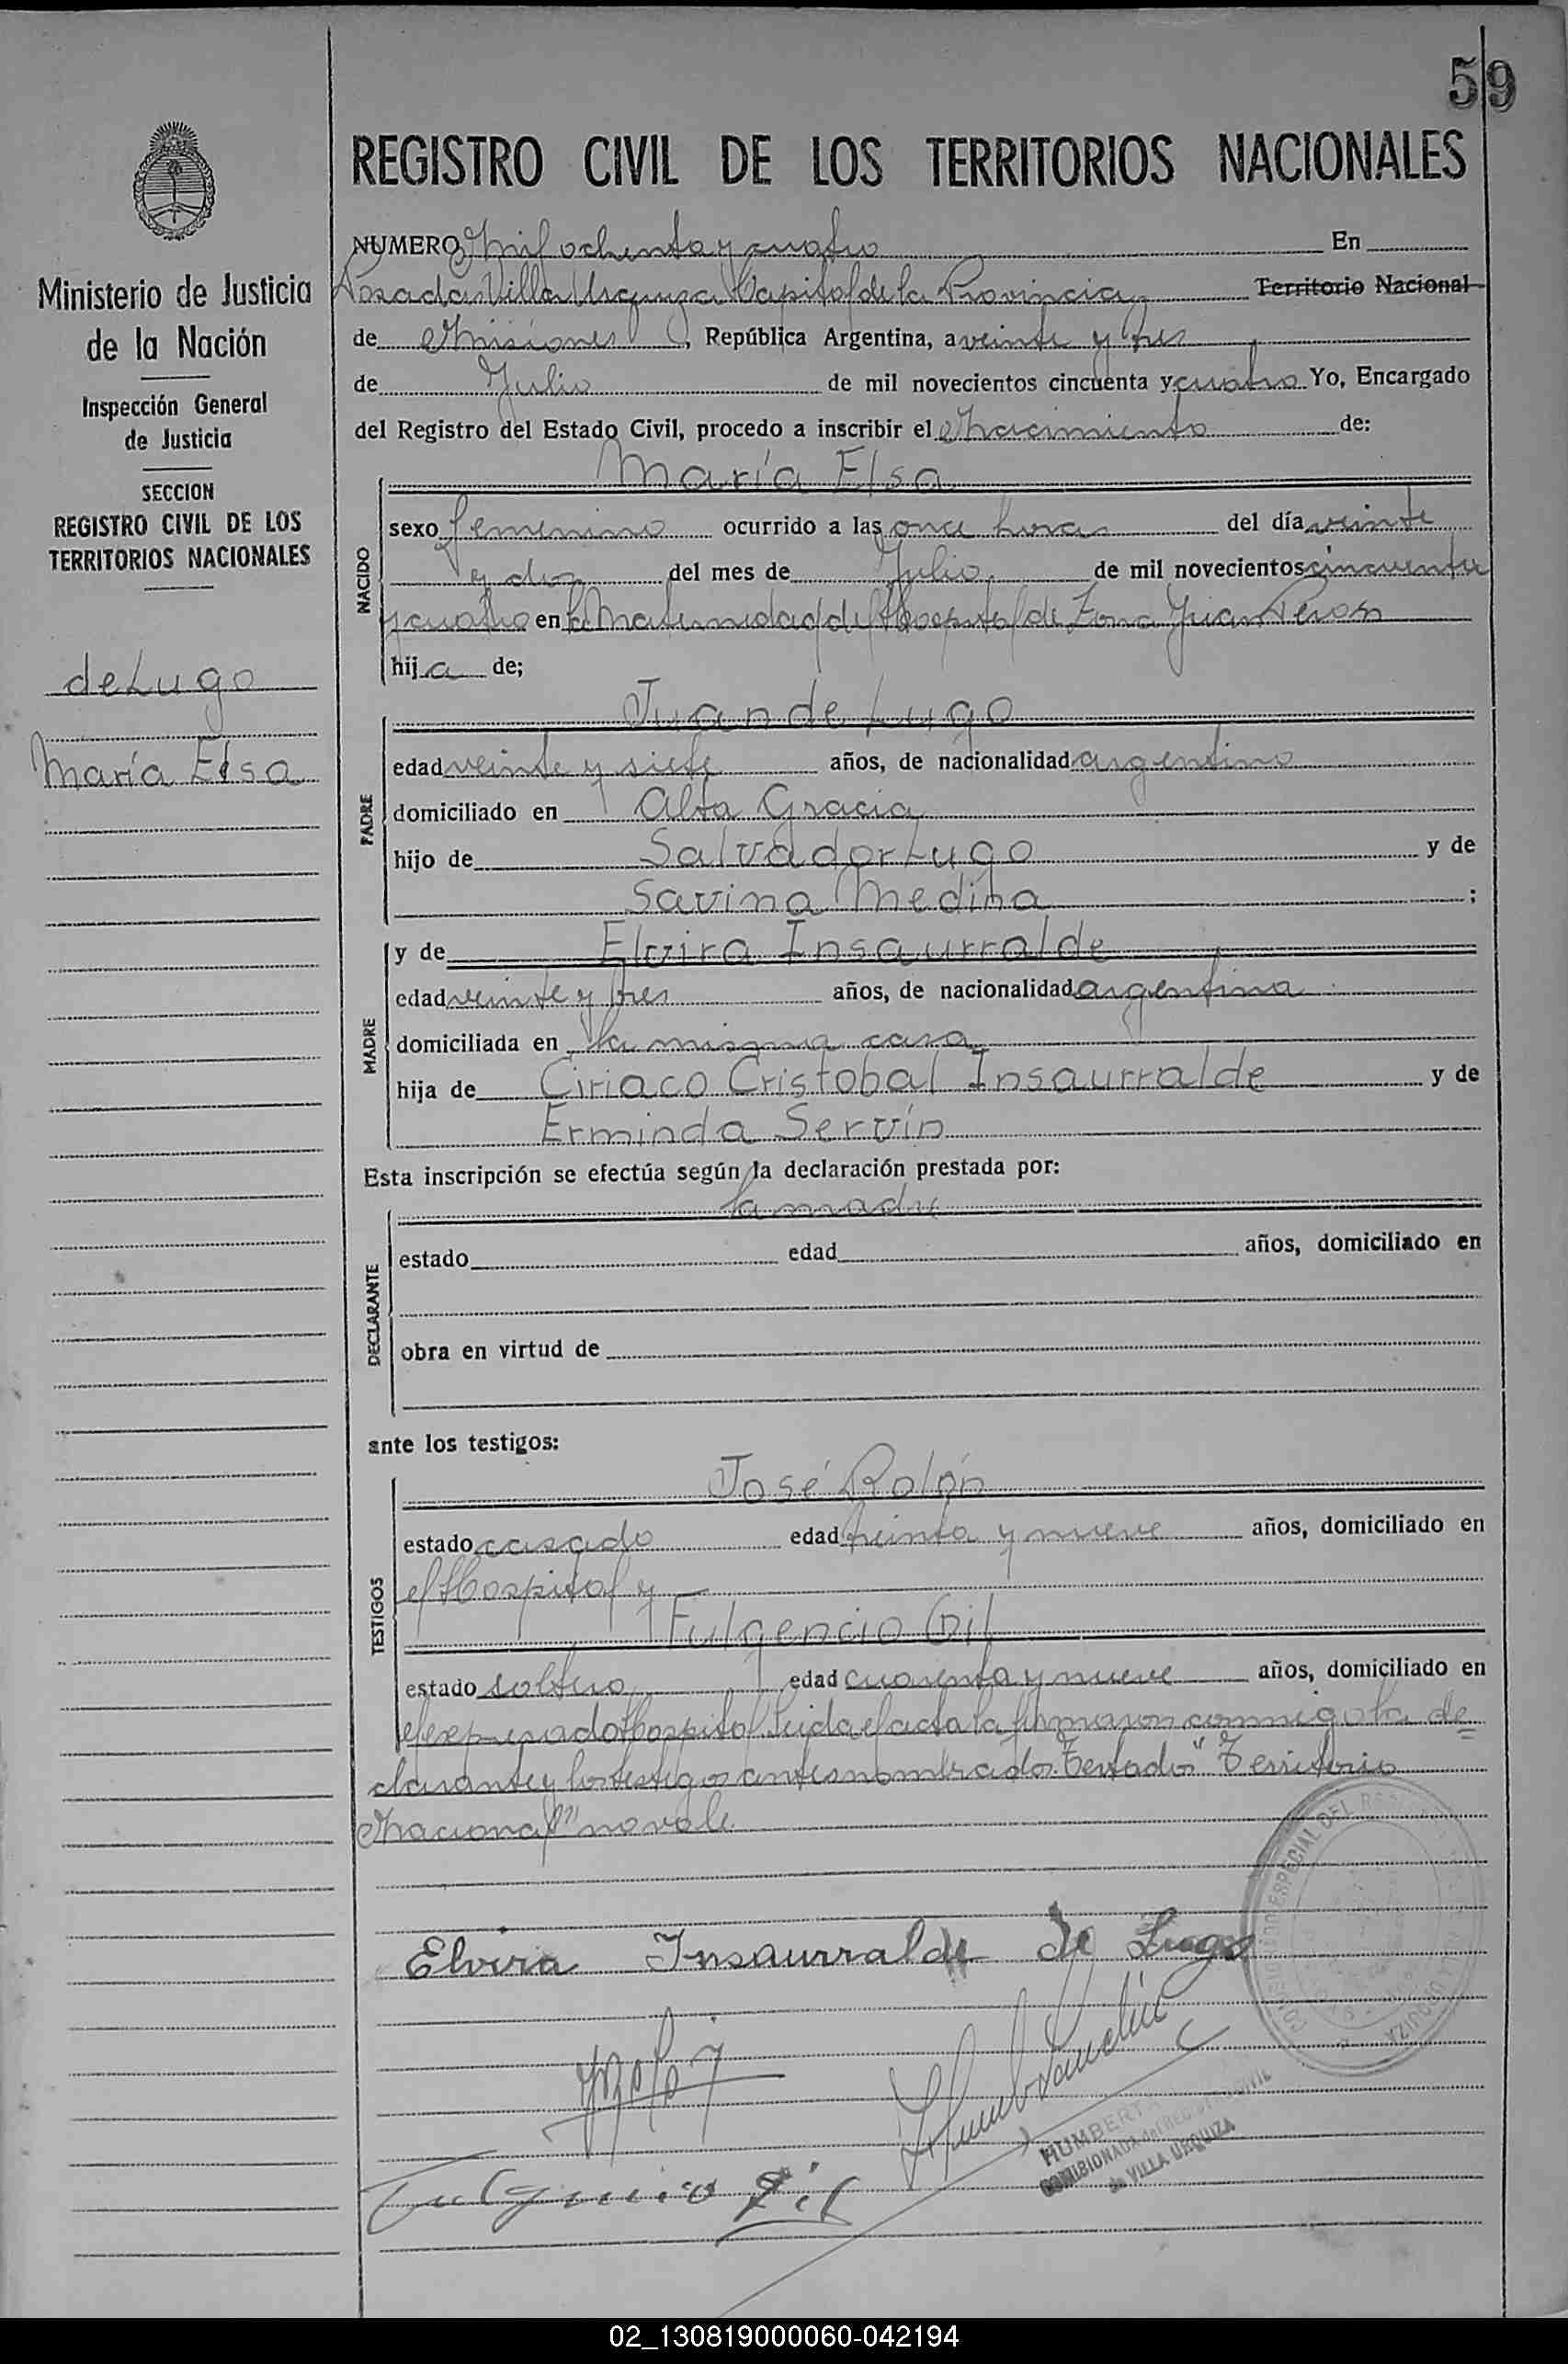 59
REGISTRO CIVIL DE LOS TERRITORIOS NACIONALES
Ministerio de Justicia
de la Nación
Inspección General
de Justicia
SECCION
REGISTRO CIVIL DE LOS
TERRITORIOS NACIONALES
de Lugo
María Elsa
NUMERO Mil ochenta y cuatro En
Posadas Villa Urquiza Capital de la Provincia Territorio Nacional
de Misiones, República Argentina, a veinte y tres
de Julio de mil novecientos cincuenta y cuatro Yo, Encargado
del Registro del Estado Civil, procedo a inscribir el Nacimiento de:
María Elsa
NACIDO
sexo femenino ocurrido a las once horas del día veinte
y dos del mes de Julio de mil novecientos cincuenta
y cuatro en la Maternidad del Hospital de Zona Juan Peron
hija de;
PADRE
Juan de Lugo
edad veinte y siete años, de nacionalidad argentino
domiciliado en Alta Gracia
hijo de Salvador Lugo y de
Savina Medina ;
MADRE
y de Elvira Insaurralde
edad veinte y tres años, de nacionalidad argentina
domiciliada en la misma casa
hija de Ciriaco Cristobal Insaurralde y de
Erminda Servín
Esta inscripción se efectúa según la declaración prestada por:
la madre
DECLARANTE
estado edad años, domiciliado en
obra en virtud de
ante los testigos:
TESTIGOS
José Rolón
estado casado edad treinta y nueve años, domiciliado en
el Hospital y
Fulgencio Gil
estado soltero edad cuarenta y nueve años, domiciliado en
el expresado Hospital. Leida el acta la firmaron conmigo la de=
clarante y los testigos antes nombrados. Testado: "Territorio
Nacional" no vale.
Elvira Insaurralde de Lugo
Fulgencio Gil
HUMBERTA
COMISIONADA del REGISTRO CIVIL
de VILLA URQUIZA
02_130819000060-042194